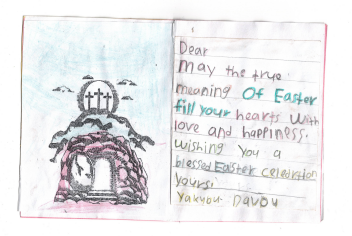 Dear
May the true
meaning Of Easter
fill your hearts With
love and happiness.
wishing you a
blessed Easter celebration
yours:
Yakubu Davou